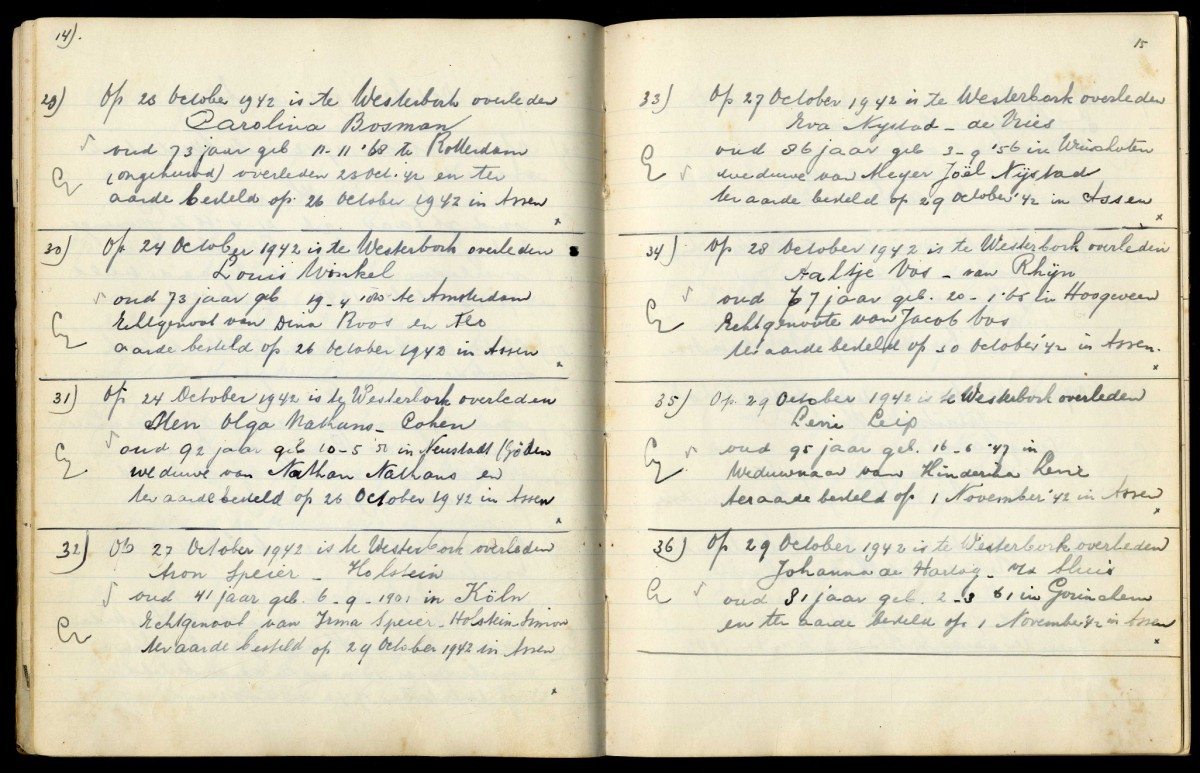 14).
29) Op 23 October 1942 is te Westerbork overleden
Carolina Bosman
oud 73 jaar geb 11-11 '68 te Rotterdam
(ongehuwd) overleden 23 Oct. 42 en ter
aarde besteld op 26 October 1942 in Assen
30) Op 24 October 1942 is te Westerbork overleden
Louis Winkel
oud 73 jaar geb 19-4 te Amsterdam
Echtgenoot van Dina Roos en ter
aarde besteld op 26 October 1942 in Assen
31) Op 24 October 1942 is te Westerbork overleden
Olga Nathans - Cohen
oud 92 jaar geb 10-5 '51 in Neustadt
weduwe van Nathan Nathans en
ter aarde besteld op 26 October 1942 in Assen
32) Op 27 October 1942 is te Westerbork overleden
Aron Speier - Holstein
oud 41 jaar geb. 6-9-1901 in Köln
Echtgenoot van Irma Speier-Holstein-Simon
ter aarde besteld op 29 October 1942 in Assen
15
33) Op 27 October 1942 is te Westerbork overleden
Eva Nystad - de Vries
oud 86 jaar geb 3-9 '56 in Winschoten
weduwe van Meyer Joël Nijstad
ter aarde besteld op 29 October '42 in Assen
34) Op 28 October 1942 is te Westerbork overleden
Aaltje Vos - van Rhijn
oud 77 jaar geb. 20-1 '65 in Hoogeveen
Echtgenoote van Jacob Vos
ter aarde besteld op 30 October '42 in Assen.
35) Op 29 October 1942 is te Westerbork overleden
Levie Leip
oud 95 jaar geb. 16-6 '47 in
Weduwnaar van Hinderika Levie
ter aarde besteld op 1 November '42 in Assen
36) Op 29 October 1942 is te Westerbork overleden
Johanna de Hartog - vd Sluis
oud 81 jaar geb. 2-3 61 in Gorinchem
en ter aarde besteld op 1 November '42 in Assen